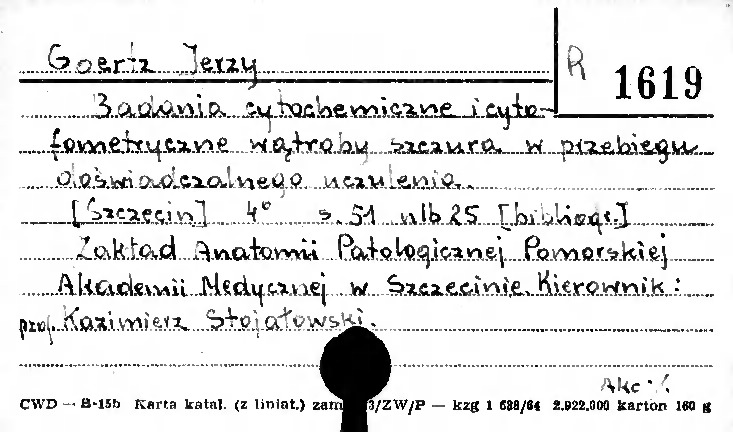 Goertz Jerzy
R 1619
Badania cytochemiczne i cyto-
fometryczne wątroby szczura w przebiegu
doświadczalnego uczulenia.
[Szczecin] 4° s. 51 nlb 25 [bibliogr.]
Zakład Anatomii Patologicznej Pomorskiej
Akademii Medycznej w Szczecinie. Kierownik:
prof. Kazimierz Stojałowski.
Akc
CWD — B-15b Karta katal. (z liniat.) zam 3/ZW/P — kzg 1 638/64 2.922.000 karton 160 g